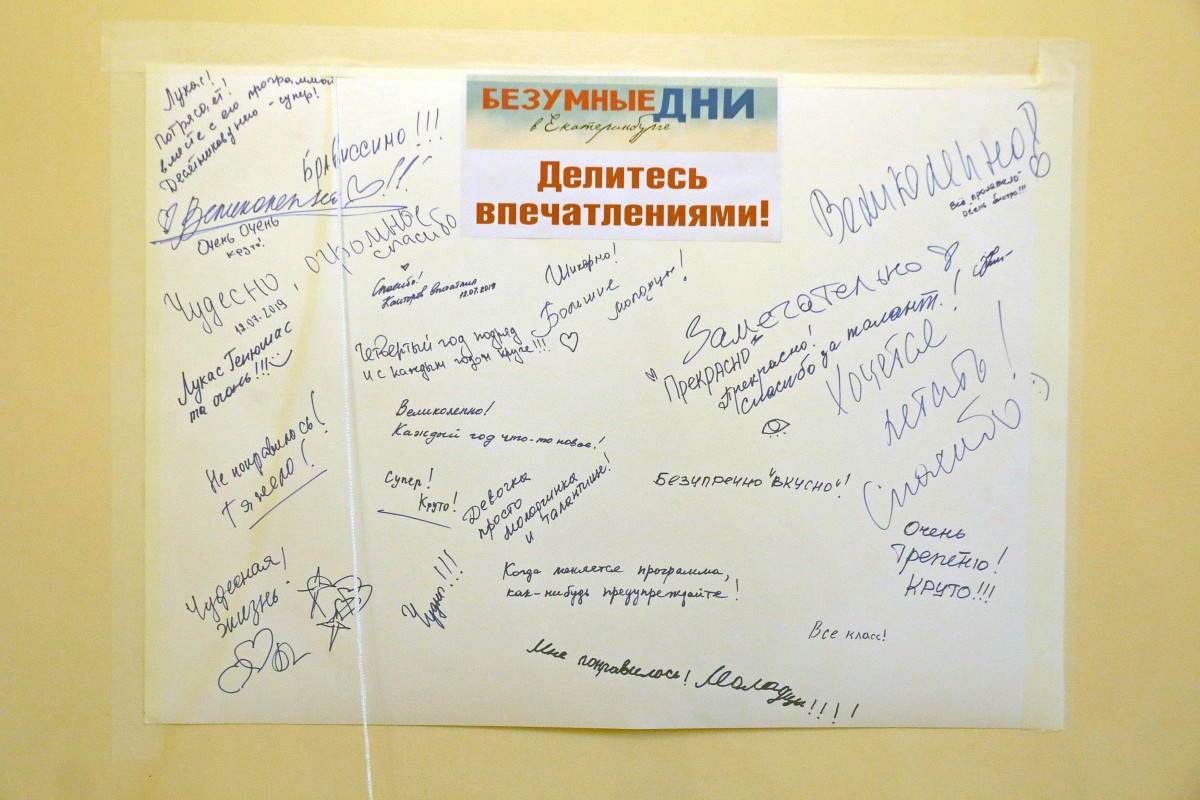 БЕЗУМНЫЕ ДНИ
в Екатеринбурге
Делитесь
впечатлениями!
Лукас!
Потрясает!
вместе с его программой
- супер!
Брависсимо!!!
Великолепно!!
Очень очень
круто!
огромное
спасибо
Чудесно
12.07.2019
Спасибо!
12.07.2019
Шикарно!
Большие
молодцы!
Четвертый год подряд
и с каждым годом круче!!!
Лукас Генюшас
та огонь!!!
Великолепно!
Каждый год что-то новое!
Не понравилось!
Тяжело!
Супер!
Круто!
Девочка
просто
молодчинка
и
талантище!
Чудно!!!
Чудесная
жизнь!
Когда меняется программа,
как-нибудь предупреждайте!
Мне понравилось! Молодцы!!!!
Великолепно!
Всё пролетело
очень быстро!!!
Замечательно
ПРЕКРАСНО
Прекрасно!
Спасибо за талант!
Хочется
летать!
Спасибо :)
Безупречно "вкусно"!
Очень
трепетно!
КРУТО!!!
Все класс!